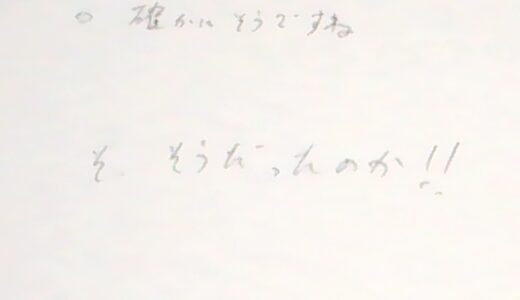 ○ 確かにそうですね
そ、そうだったのか!!